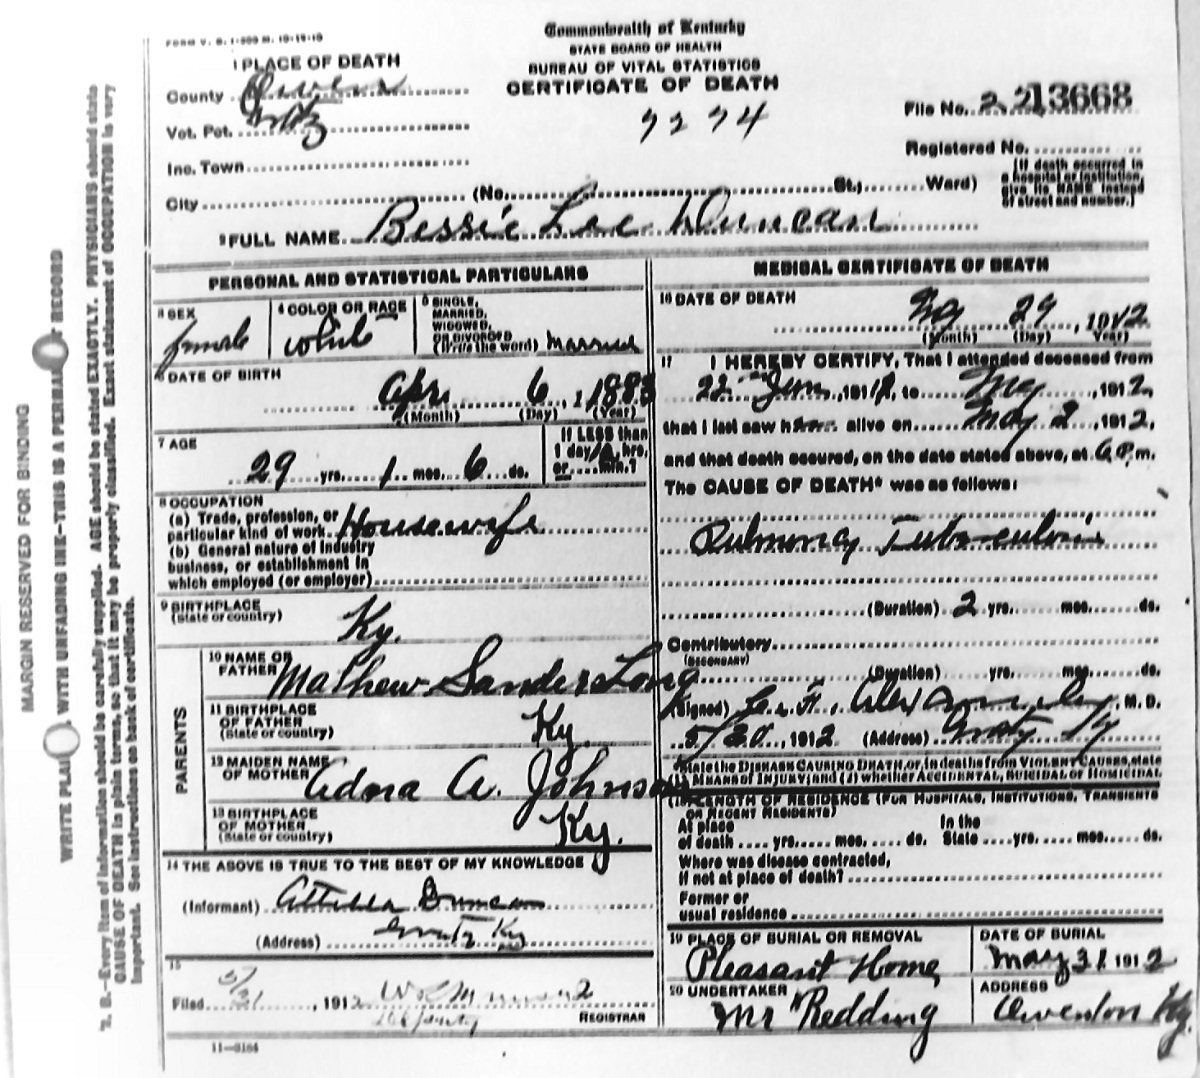 FORM V. S. 1-
Commonwealth of Kentucky
STATE BOARD OF HEALTH
BUREAU OF VITAL STATISTICS
CERTIFICATE OF DEATH
1 PLACE OF DEATH
County Owen
Vot. Pct. Gratz
Inc. Town
City (No. St., Ward)
7274
File No. 22 13668
Registered No.
(If death occurred in
a hospital or institution,
give its NAME instead
of street and number.)
2 FULL NAME Bessie Lee Duncan
PERSONAL AND STATISTICAL PARTICULARS
3 SEX
female
4 COLOR OR RACE
white
5 SINGLE,
MARRIED,
WIDOWED,
OR DIVORCED
(Write the word) Married
6 DATE OF BIRTH
Apr. 6, 1883
(Month) (Day) (Year)
7 AGE
29 yrs. 1 mos. 6 ds.
If LESS than
1 day, hrs.
or min.?
8 OCCUPATION
(a) Trade, profession, or
particular kind of work Housewife
(b) General nature of industry
business, or establishment in
which employed (or employer)
9 BIRTHPLACE
(State or country)
Ky.
PARENTS
10 NAME OF
FATHER Mathew Sanders Long
11 BIRTHPLACE
OF FATHER
(State or country) Ky.
12 MAIDEN NAME
OF MOTHER Adna A. Johnson
13 BIRTHPLACE
OF MOTHER
(State or country) Ky.
14 THE ABOVE IS TRUE TO THE BEST OF MY KNOWLEDGE
(Informant) Duncan
(Address) Gratz Ky
15
Filed 5/31, 1912
Deputy REGISTRAR
11-3184
MEDICAL CERTIFICATE OF DEATH
16 DATE OF DEATH
May 29, 1912
(Month) (Day) (Year)
17 I HEREBY CERTIFY, That I attended deceased from
22 Jan, 191, to May, 1912,
that I last saw h alive on May 2, 1912,
and that death occured, on the date stated above, at 6 P.m.
The CAUSE OF DEATH* was as follows:
Pulmonary Tuberculosis
(Duration) 2 yrs. mos. ds.
Contributory
(SECONDARY)
(Duration) yrs. mos. ds.
(Signed) M. D.
5/30, 1912 (Address) Gratz Ky
*State the DISEASE CAUSING DEATH, or, in deaths from VIOLENT CAUSES, state
(1) MEANS OF INJURY; and (2) whether ACCIDENTAL, SUICIDAL or HOMICIDAL
18 LENGTH OF RESIDENCE (FOR HOSPITALS, INSTITUTIONS, TRANSIENTS
OR RECENT RESIDENTS)
At place
of death yrs. mos. ds.
In the
State yrs. mos. ds.
Where was disease contracted,
If not at place of death?
Former or
usual residence
19 PLACE OF BURIAL OR REMOVAL
Pleasant Home
DATE OF BURIAL
May 31 1912
20 UNDERTAKER
Mr Redding
ADDRESS
Owenton Ky.
MARGIN RESERVED FOR BINDING
WRITE PLAINLY, WITH UNFADING INK—THIS IS A PERMANENT RECORD
N. B.—Every item of information should be carefully supplied. AGE should be stated EXACTLY. PHYSICIANS should state
CAUSE OF DEATH in plain terms, so that it may be properly classified. Exact statement of OCCUPATION is very
important. See instructions on back of certificate.